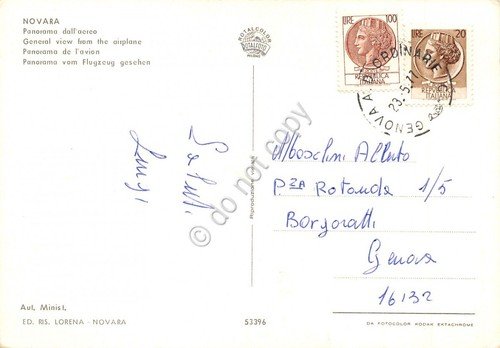 NOVARA
Panorama dall'aereo
General view from the airplane
Panorama de l'avion
Panorama vom Flugzeug gesehen
ROTALCOLOR
ROTALFOTO
MILANO
LIRE 100
REPVBBLICA
ITALIANA
LIRE 20
REPVBBLICA
ITALIANA
GENOVA A.D. ORDINARIE
23.5.77
Saluti
Luigi
do not copy
Riproduzione
Alberto
P.ZA Rotonda 1/5
Borgoratti
Genova
16132
Aut. Minist.
ED. RIS. LORENA - NOVARA
53396
DA FOTOCOLOR KODAK EKTACHROME